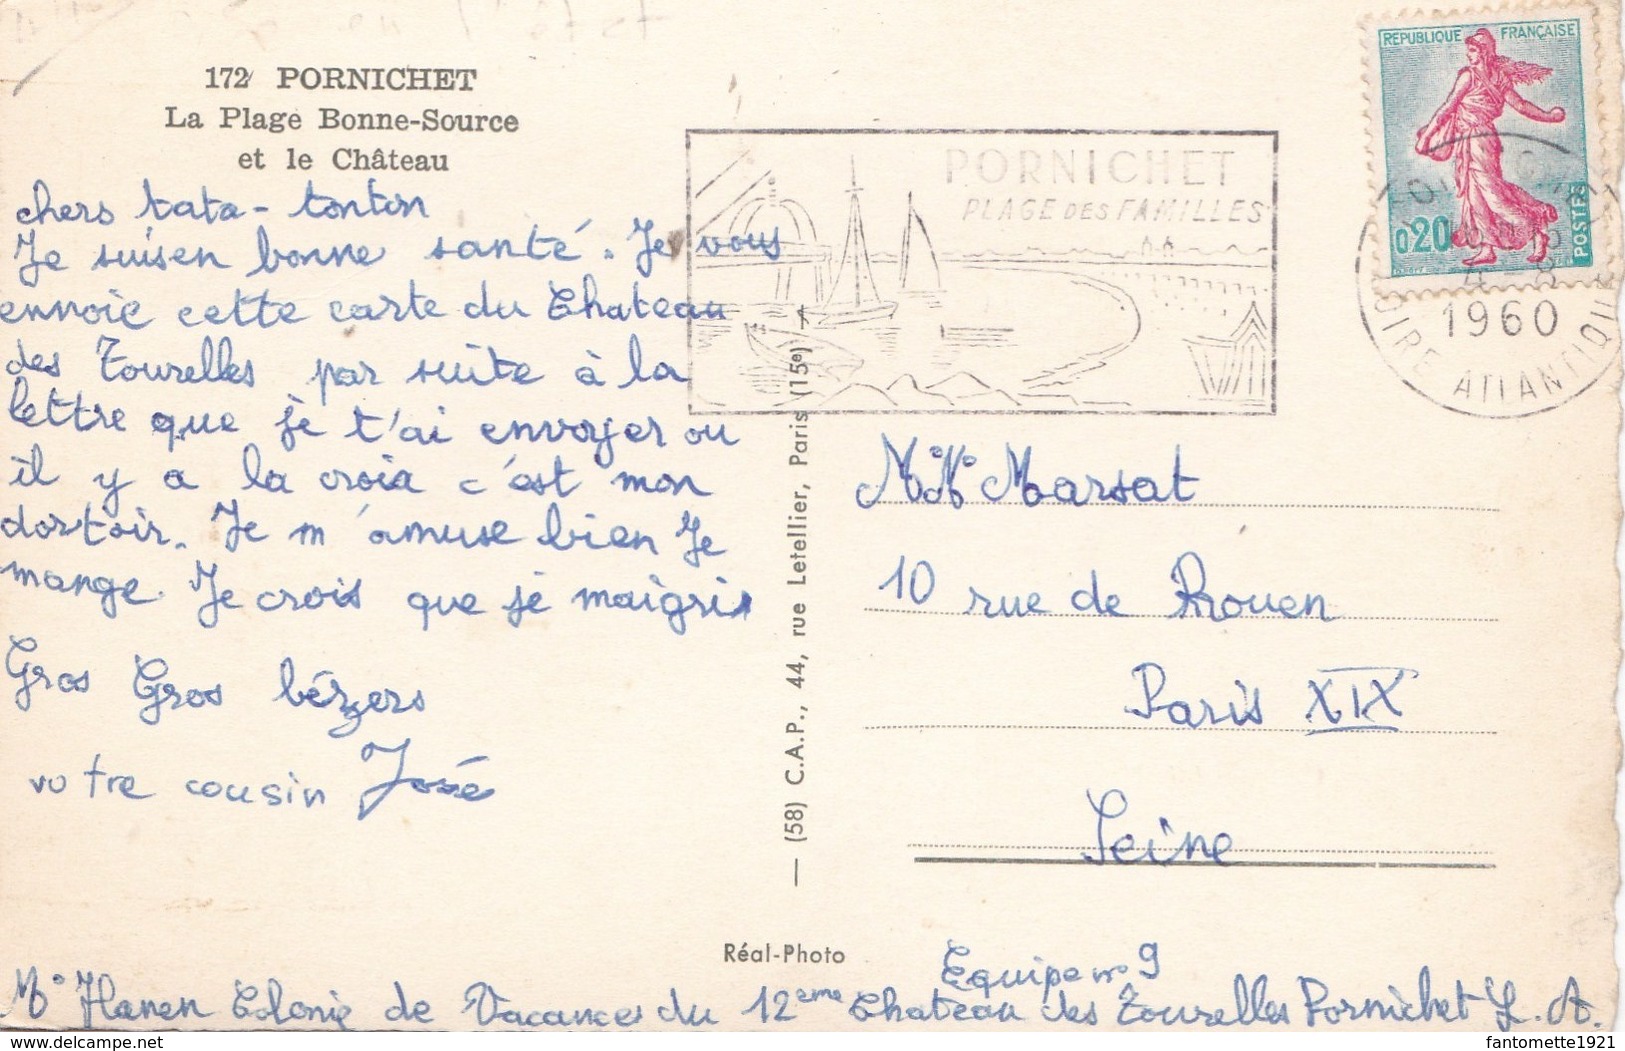 172 PORNICHET
La Plage Bonne-Source
et le Château
chers tata - tonton
Je suis en bonne santé. Je vous
envoie cette carte du Chateau
des Tourelles par suite à la
lettre que je t'ai envoyer ou
il y a la croix c'est mon
dortoir. Je m'amuse bien Je
mange. Je crois que je maigris
Gros Gros bézers
votre cousin José
PORNICHET
PLAGE DES FAMILLES
REPUBLIQUE FRANÇAISE
0,20
POSTES
4 - 8
1960
LOIRE ATLANTIQUE
— (58) C.A.P., 44, rue Letellier, Paris (15e) —
M. M. Marsat
10 rue de Rouen
Paris XIX
Seine
Réal-Photo
Equipe n° 9
M. Hanen Colonie de Vacances du 12eme Chateau des Tourelles Pornichet L. A.
fantomette1921